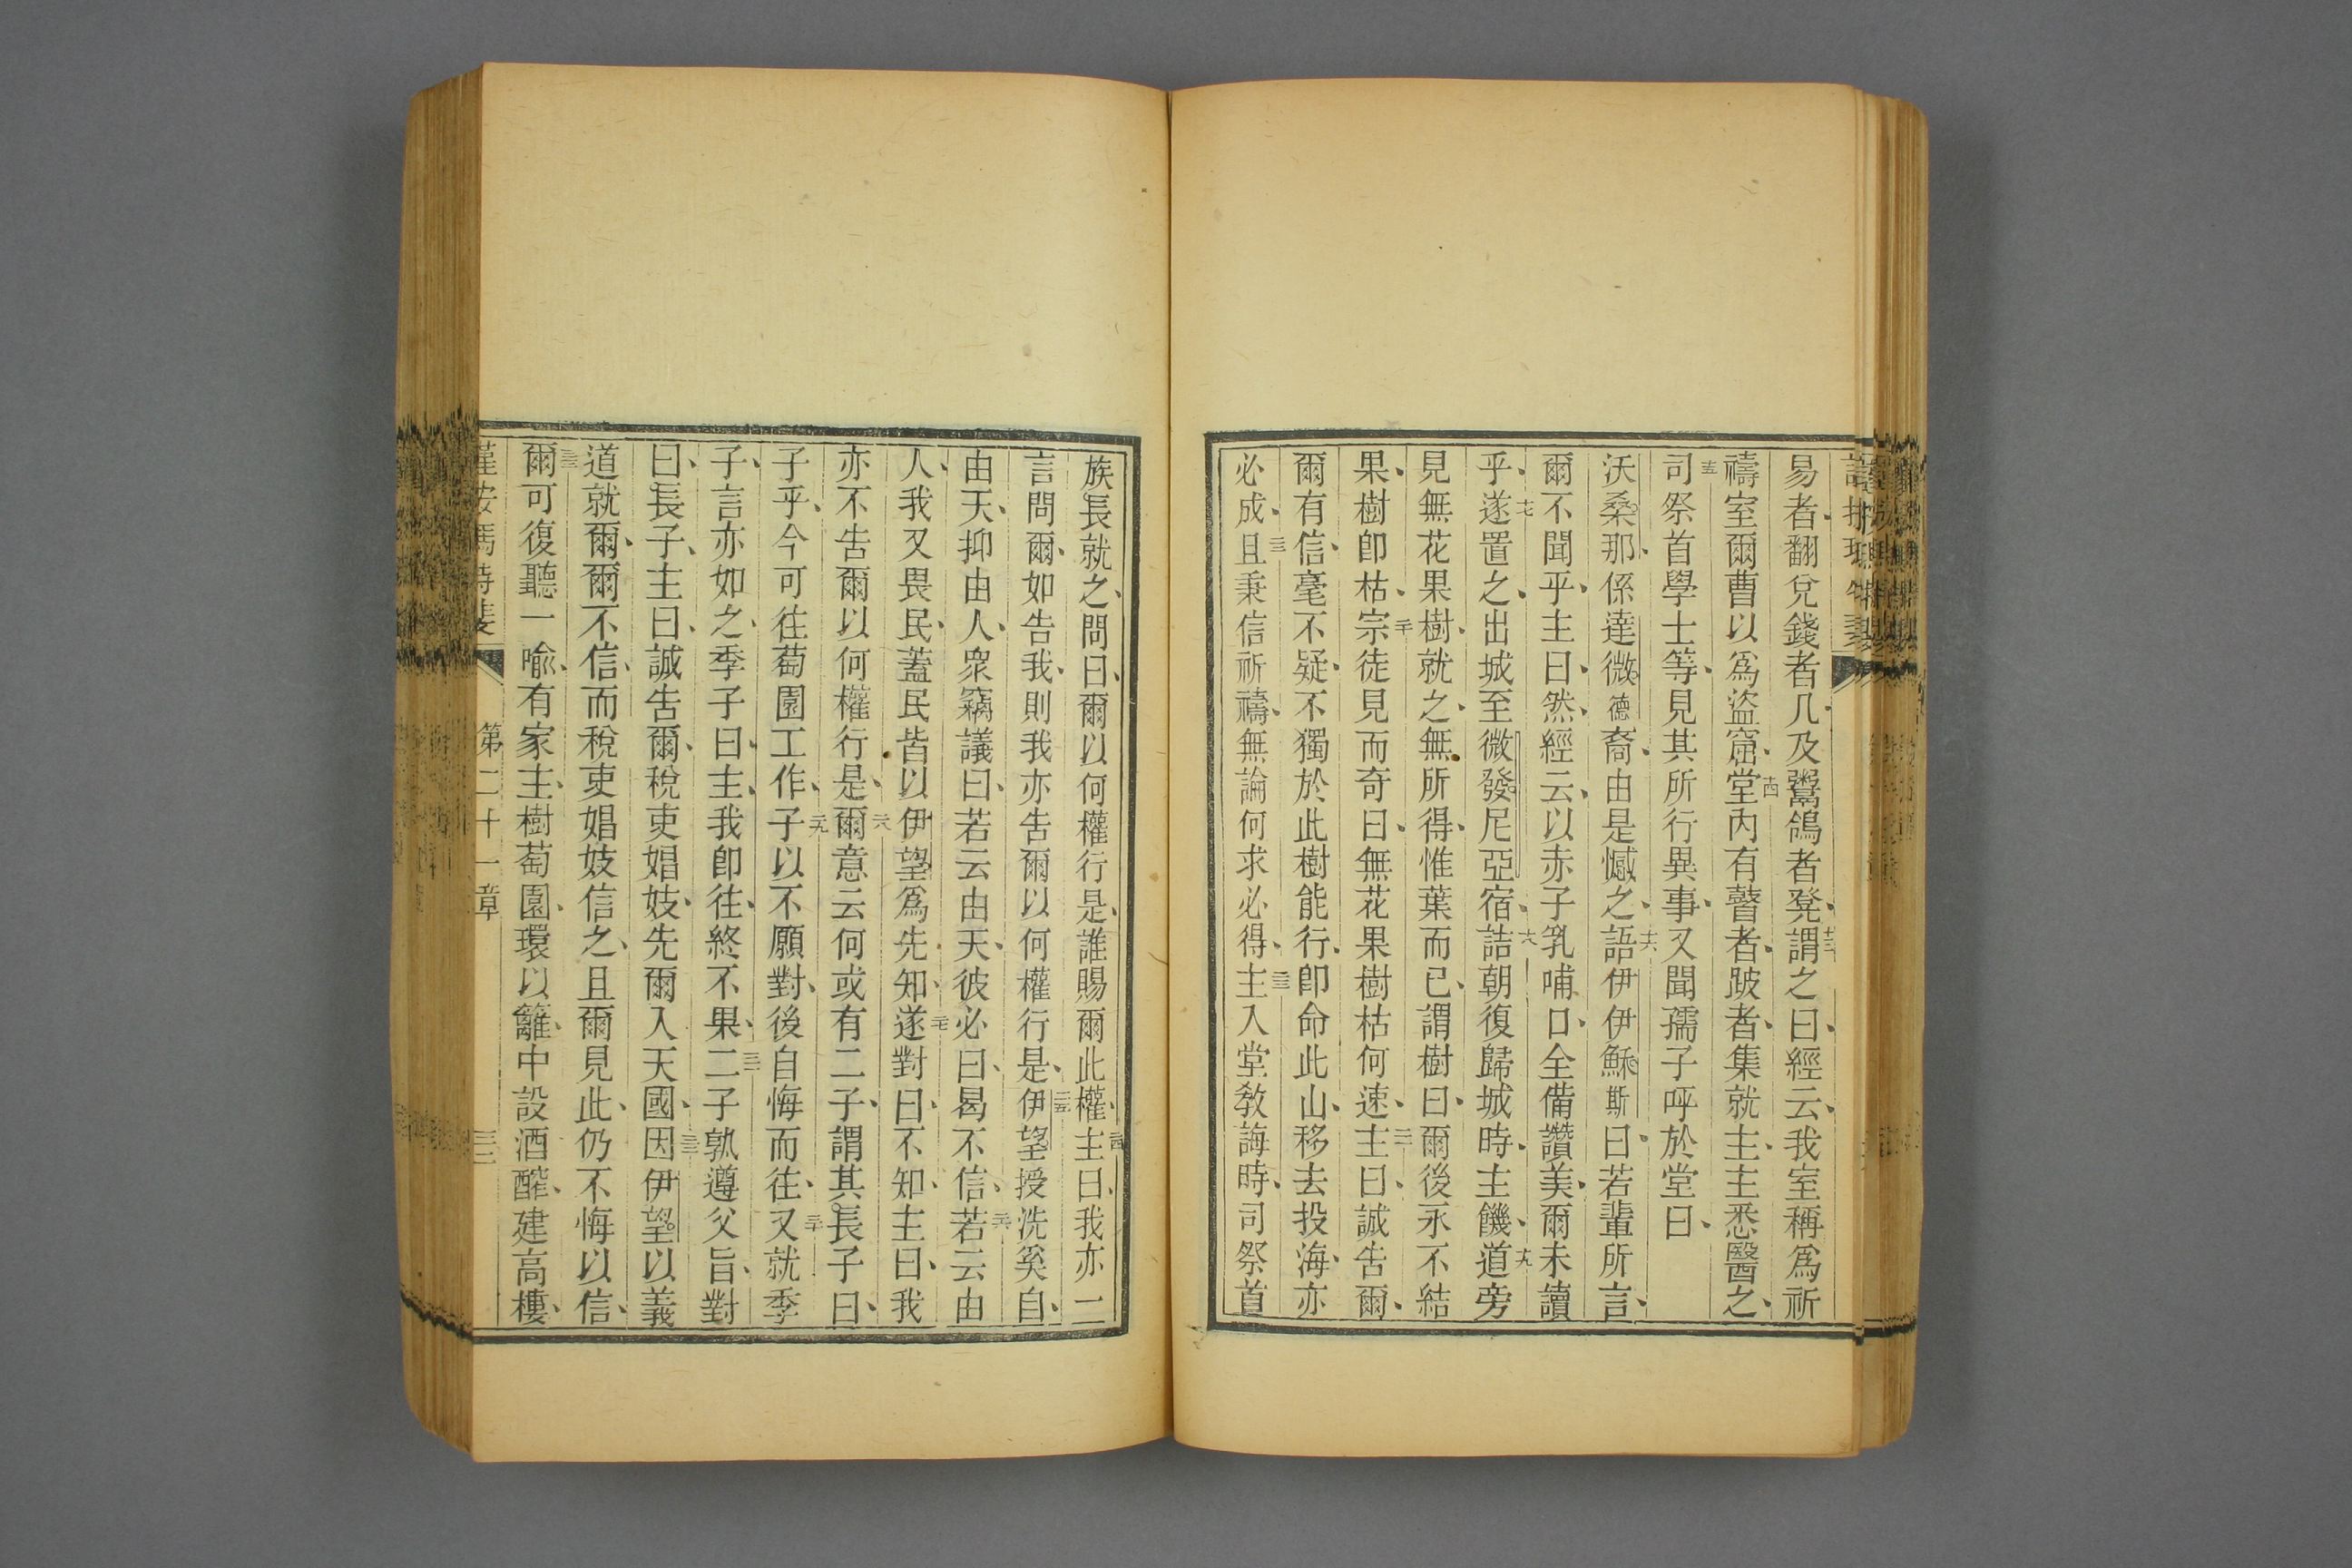 易者、翻兌錢者几、及鬻鴿者凳、十三謂之曰、經云、我室稱爲祈
禱室爾曹以爲盜窟、十四堂內有瞽者、跛者、集就主、主悉醫之、
十五司祭首學士等、見其所行異事、又聞孺子呼於堂曰、
沃桑那、係達微德裔、由是憾之、十六語伊伊穌斯曰、若輩所言、
爾不聞乎、主曰、然、經云、以赤子乳哺口、全備讚美、爾未讀
乎、十七遂置之、出城至微發尼亞宿、十八詰朝復歸城時、主饑、十九道旁
見無花果樹、就之、無所得、惟葉而已、謂樹曰、爾後永不結
果、樹卽枯、二十宗徒見而奇曰、無花果樹枯何速、二一主曰、誠吿爾、
爾有信、毫不疑、不獨於此樹能行、卽命此山、移去投海、亦
必成、二二且秉信祈禱、無論何求必得、二三主入堂教誨時、司祭首
族長就之、問曰、爾以何權行是、誰賜爾此權、二四主曰、我亦一
言問爾、如告我、則我亦吿爾以何權行是、二五伊望授洗奚自、
由天、抑由人、衆竊議曰、若云由天、彼必曰、曷不信、二六若云由
人、我又畏民、蓋民皆以伊望爲先知、二七遂對曰、不知、主曰、我
亦不吿爾以何權行是、二八爾意云何、或有二子、謂其長子曰、
子乎、今可往萄園工作、二九子以不願對、後自悔而往、三十又就季
子、言亦如之、季子曰、主、我卽往、終不果、三一二子孰遵父旨、對
曰、長子、主曰、誠吿爾、稅吏娼妓、先爾入天國、三二因伊望以義
道就爾、爾不信、而稅吏娼妓信之、且爾見此、仍不悔以信、
三三爾可復聽一喩、有家主、樹萄園、環以籬、中設酒醡、建高樓、
第二十一章